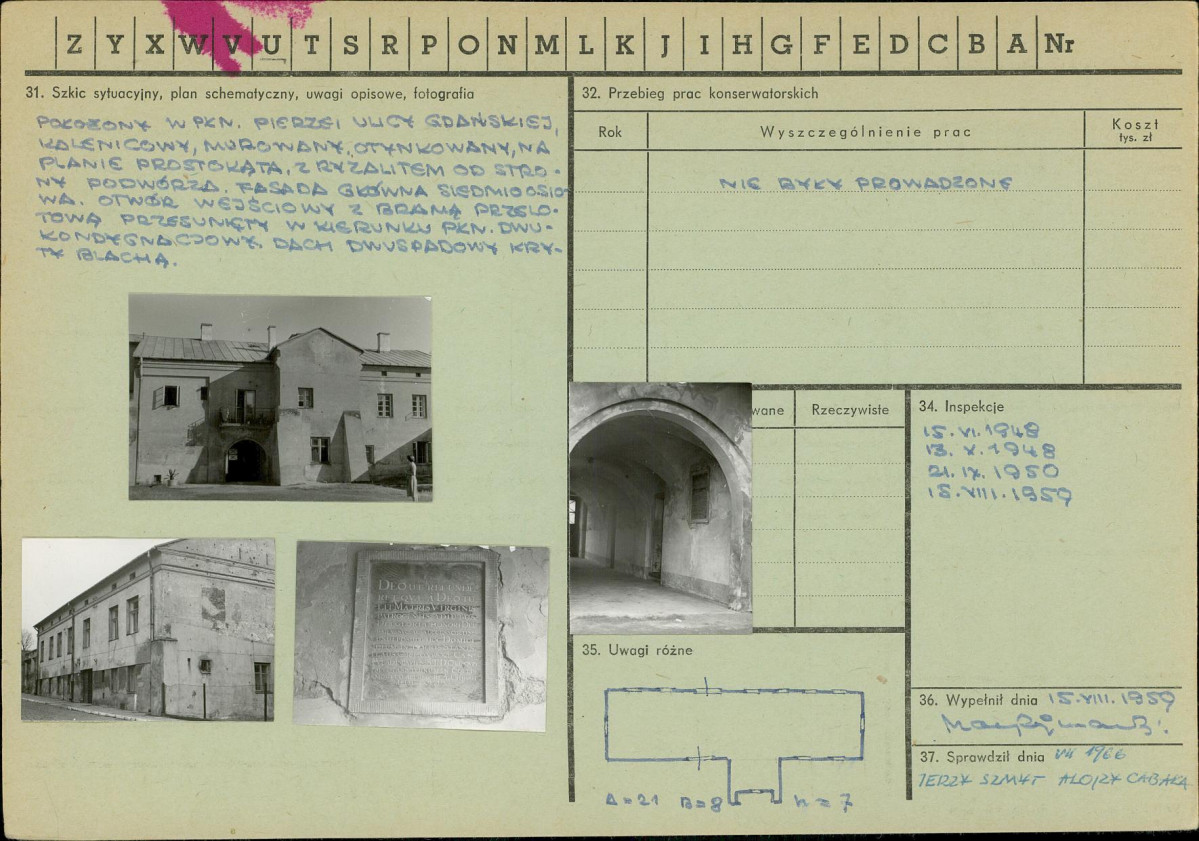 Z Y X W V U T S R P O N M L K J I H G F E D C B A Nr
31. Szkic sytuacyjny, plan schematyczny, uwagi opisowe, fotografia
POŁOŻONY W PŁN. PIERZEI ULICY GDAŃSKIEJ,
KALENICOWY, MUROWANY, OTYNKOWANY, NA
PLANIE PROSTOKĄTA, Z RYZALITEM OD STRO-
NY PODWÓRZA. FASADA GŁÓWNA SIEDMIOOSIO
WA. OTWÓR WEJŚCIOWY Z BRAMĄ PRZELO-
TOWĄ PRZESUNIĘTY W KIERUNKU PŁN. DWU-
KONDYGNACJOWY. DACH DWUSPADOWY KRY-
TY BLACHĄ.
32. Przebieg prac konserwatorskich
Rok
Wyszczególnienie prac
Koszt
tys. zł
NIE BYŁY PROWADZONE
wane
Rzeczywiste
34. Inspekcje
15. VI. 1948
13. X. 1948
21. IX. 1950
15. VIII. 1959
35. Uwagi różne
A = 21 B = 8 h = 7
36. Wypełnił dnia 15. VIII. 1959
37. Sprawdził dnia VII 1966
JERZY SZMYT ALOJZY CABAŁA